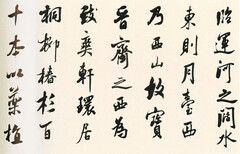 临運河之阔水
東则月臺西
乃西山故寶
晋齋之西為
致爽軒環居
桐柳椿杉百
十本以藥植